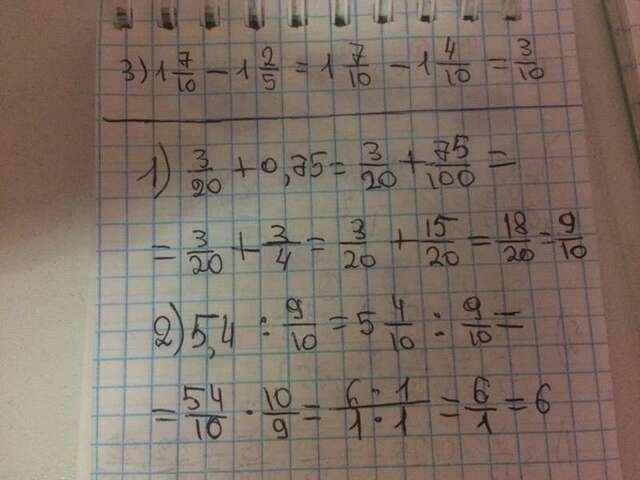 3) 1 7/10 - 1 2/5 = 1 7/10 - 1 4/10 = 3/10
1) 3/20 + 0,75 = 3/20 + 75/100 =
= 3/20 + 3/4 = 3/20 + 15/20 = 18/20 = 9/10
2) 5,4 : 9/10 = 5 4/10 : 9/10 =
= 54/10 · 10/9 = 6·1/1·1 = 6/1 = 6